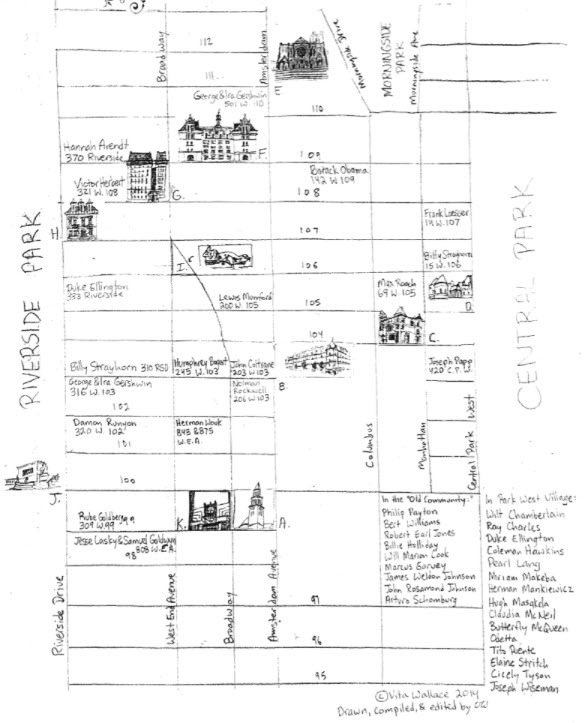 Broadway
112
Amsterdam
Morningside Drive
MORNINGSIDE
PARK
Morningside Ave
111
E.
George & Ira Gershwin
501 W. 110
110
Hannah Arendt
370 Riverside
F.
109
Victor Herbert
321 W. 108
G.
Barack Obama
142 W 109
108
RIVERSIDE PARK
H.
107
Frank Loesser
14 W. 107
CENTRAL PARK
I.
106
Billy Strayhorn
15 W. 106
Duke Ellington
333 Riverside
Lewis Mumford
200 W. 105
105
Max Roach
69 W. 105
D.
104
C.
Billy Strayhorn 310 RSD
Humphrey Bogart
245 W. 103
John Coltrane
203 W 103
Joseph Papp
420 C.P.W.
George & Ira Gershwin
316 W. 103
Norman
Rockwell
206 W 103
B.
102
Damon Runyon
320 W. 102
Herman Wouk
845 & 875
W.E.A.
101
Columbus
Manhattan
Central Park West
100
J.
Rube Goldberg
309 W. 99
99
K.
A.
Jesse Lasky & Samuel Goldwyn
808 W.E.A.
98
In the "Old Community:"
Philip Payton
Bert Williams
Robert Earl Jones
Billie Holliday
Will Marion Cook
Marcus Garvey
James Weldon Johnson
John Rosamond Johnson
Arturo Schomburg
In Park West Village:
Wilt Chamberlain
Ray Charles
Duke Ellington
Coleman Hawkins
Pearl Lang
Miriam Makeba
Herman Mankiewicz
Hugh Masakela
Claudia McNeil
Butterfly McQueen
Odetta
Tito Puente
Elaine Stritch
Cicely Tyson
Joseph Wiseman
Riverside Drive
West End Avenue
Broadway
Amsterdam Avenue
97
96
95
©Vita Wallace 2014
Drawn, compiled, & edited by